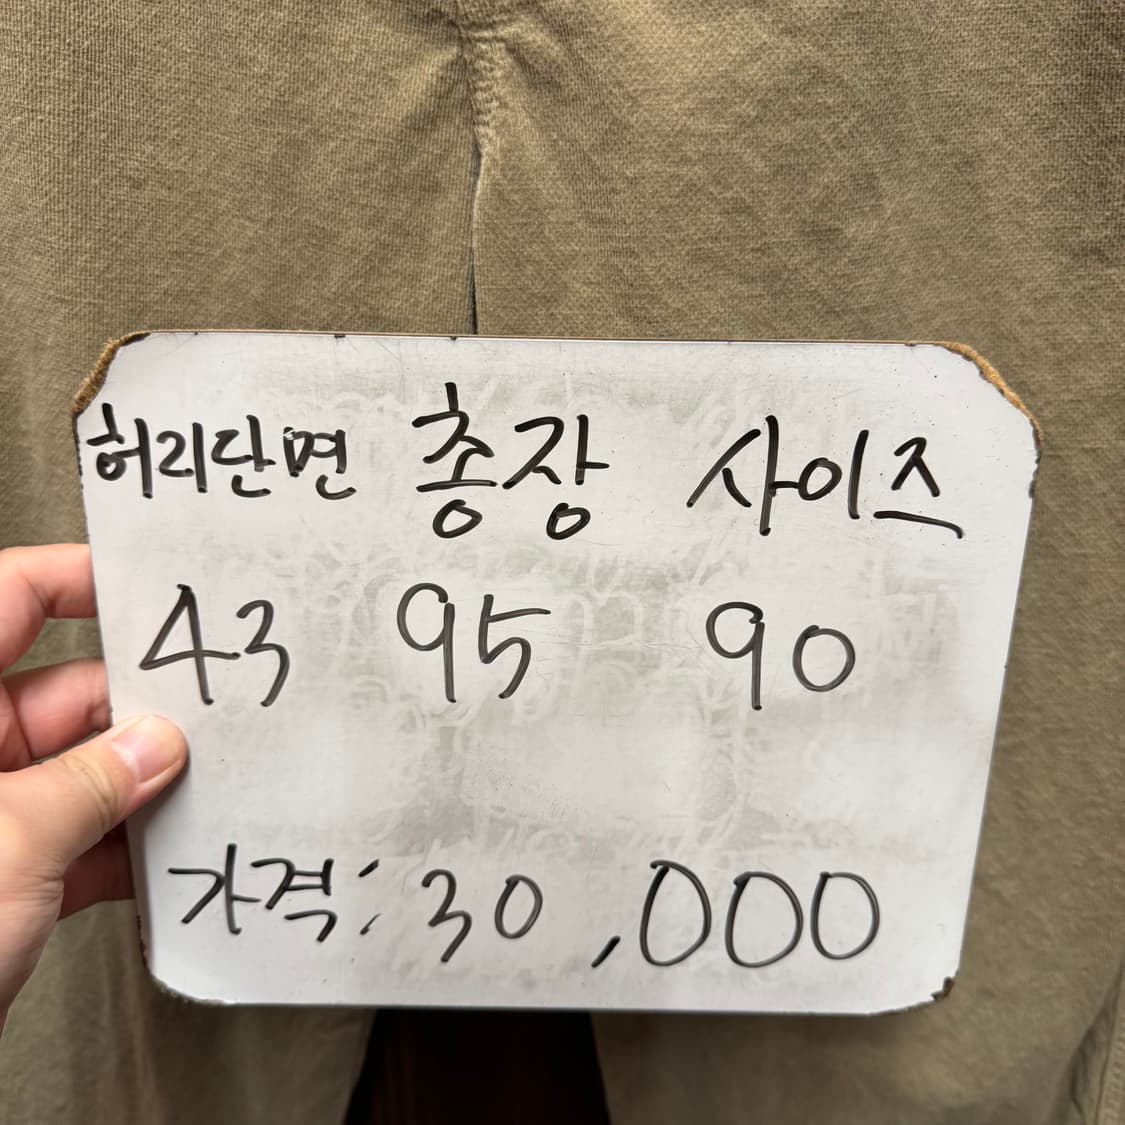 허리단면 총장 사이즈
43 95 90
가격: 30,000